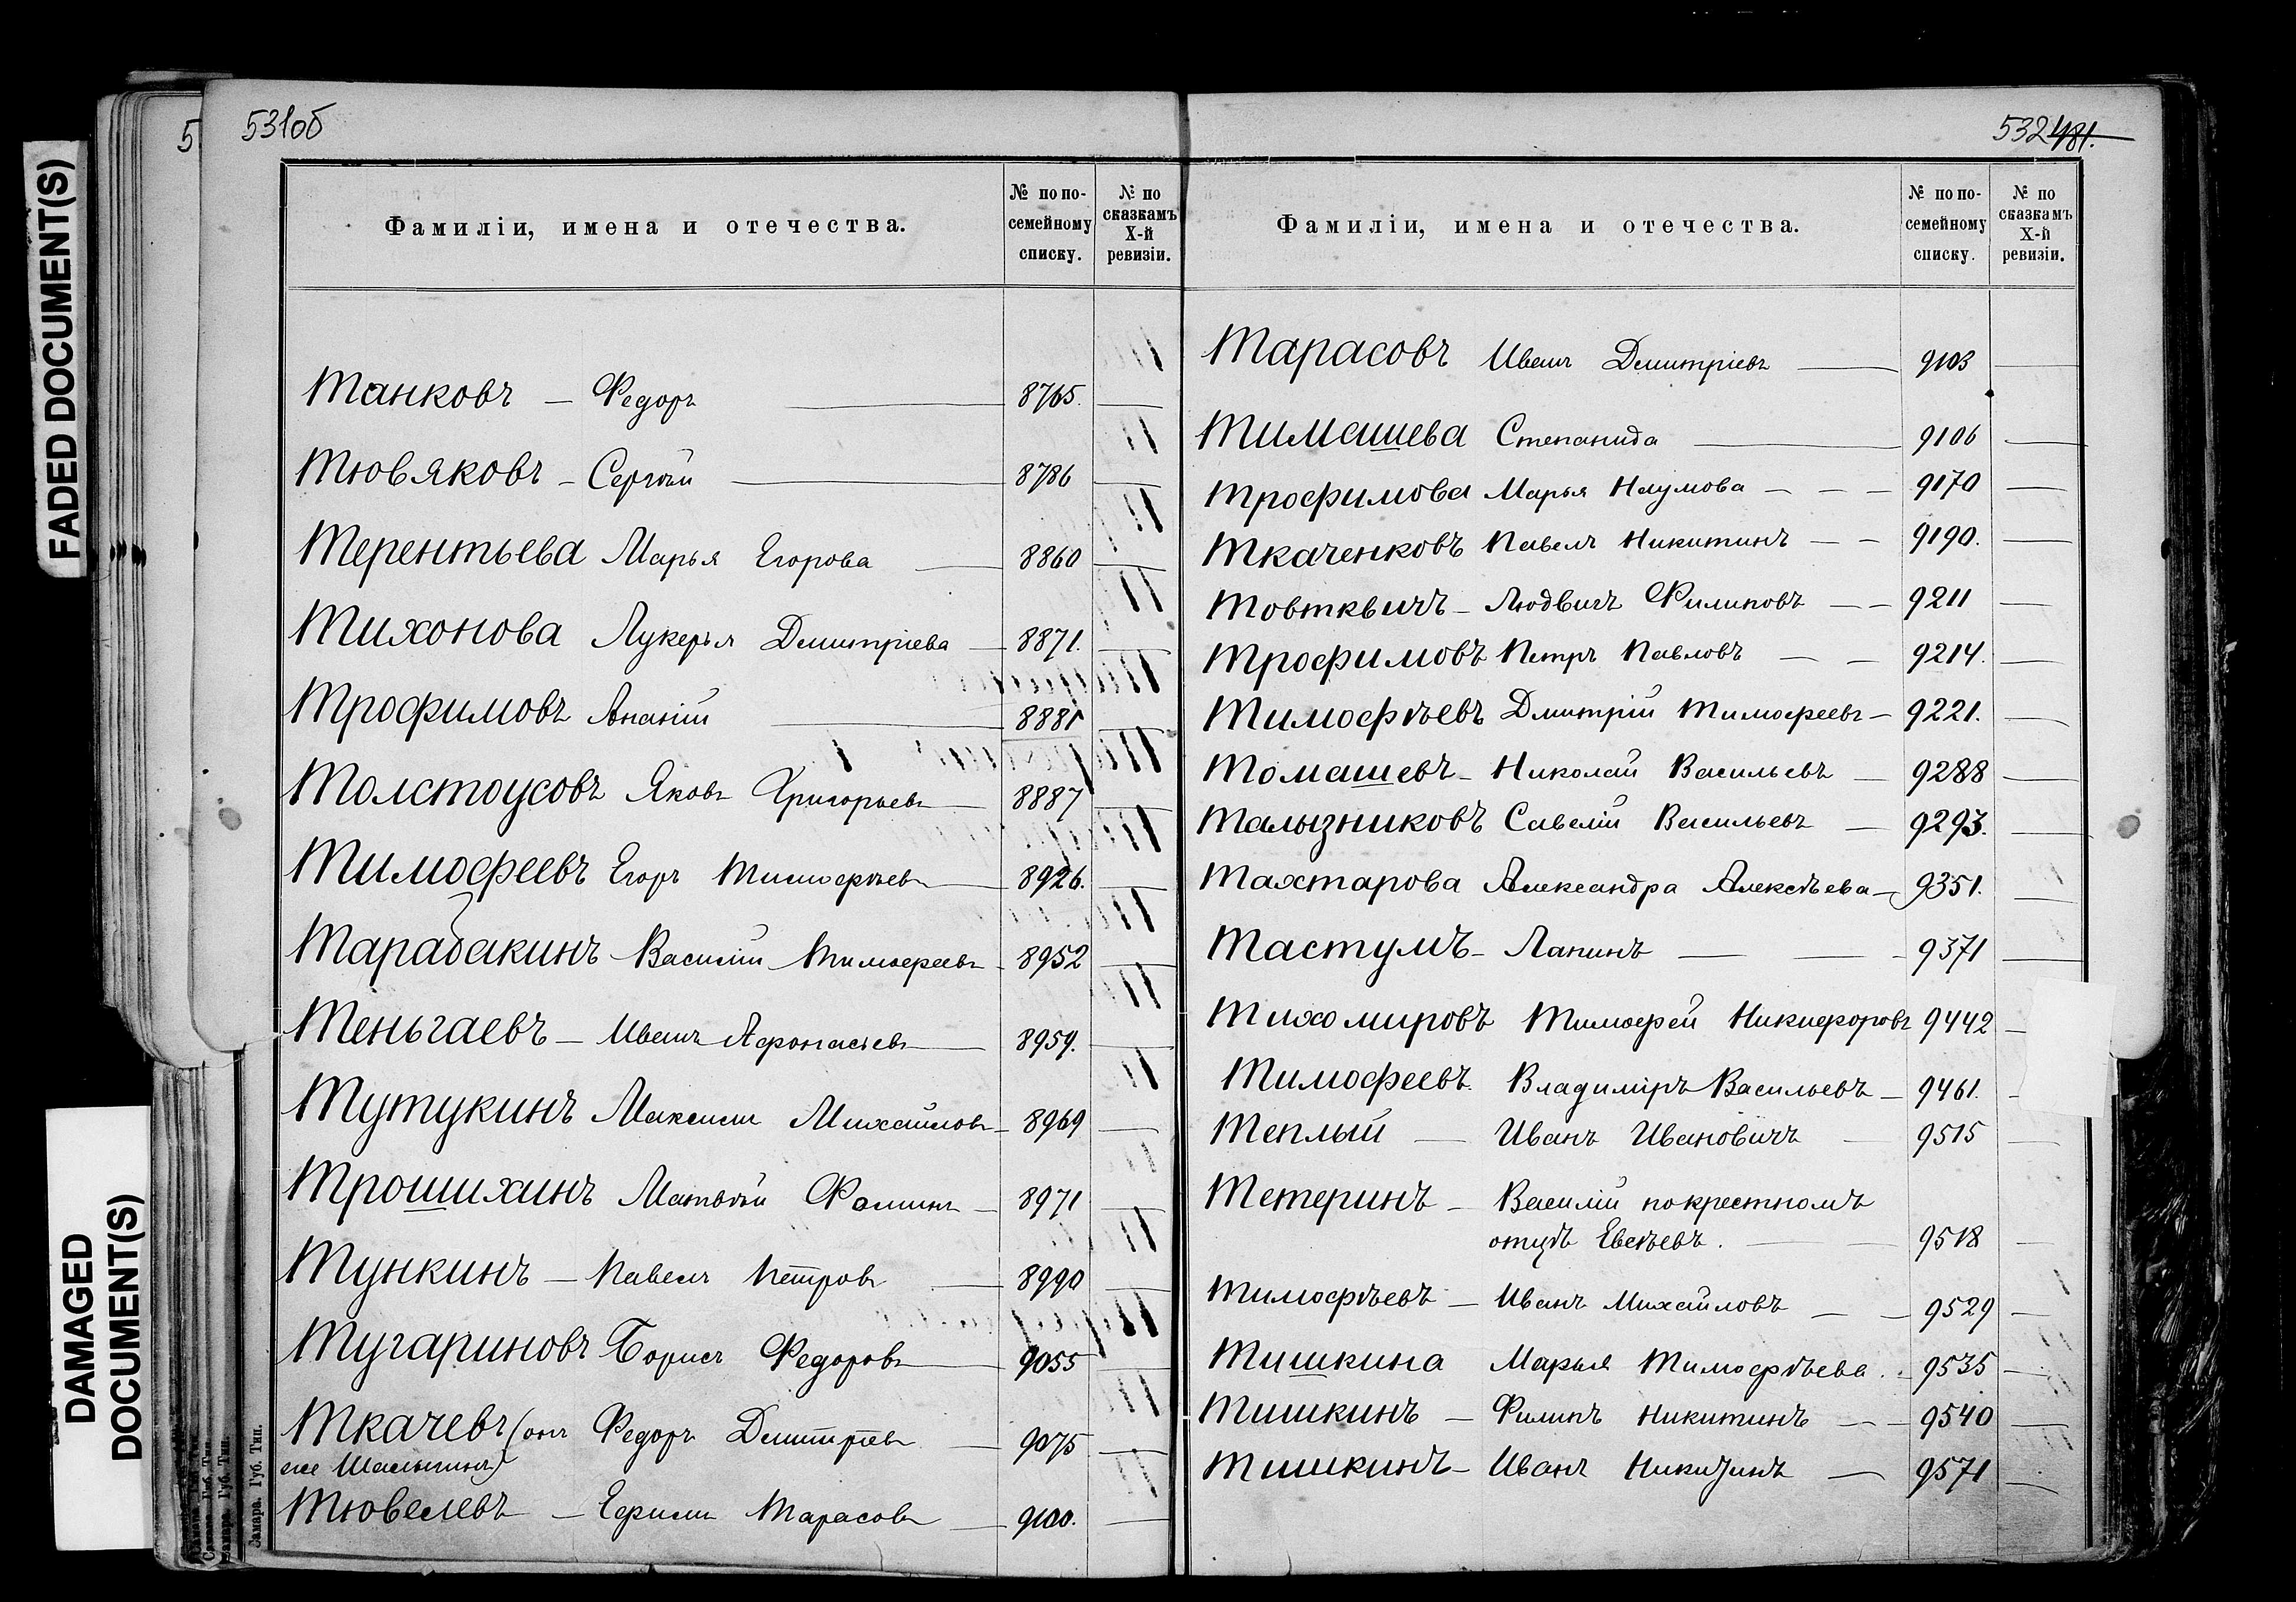 FADED DOCUMENT(S)
DAMAGED DOCUMENT(S)
5
531об
Фамиліи, имена и отечества.
№ по по-
семейному
списку.
№ по
сказкамъ
X-й
ревизіи.
Танковъ — Федоръ — 8765. —
Тювяковъ — Сергѣй — 8786 —
Терентьева Марья Егорова — 8860 —
Тихонова Лукерья Дмитріева — 8871. —
Трофимовъ Ананій — 8881 —
Толстоусовъ Яковъ Григорьевъ — 8887 —
Тимофеевъ Егоръ Тимофѣевъ — 8926. —
Тарабакинъ Василій Тимофеевъ — 8952 —
Теньгаевъ — Иванъ Афонасьевъ — 8959. —
Тутукинъ Максимъ Михайловъ — 8969 —
Трошихинъ Матвѣй Фоминъ — 8971 —
Тункинъ — Павелъ Петровъ — 8990 —
Тугариновъ Борисъ Федоровъ — 9055 —
Ткачевъ (онъ Федоръ Дмитріевъ — 9075 —
же Шалыпинъ)
Тювелевъ — Ефимъ Тарасовъ — 9100. —
Самара. Губ. Тип.
532 481.
Фамиліи, имена и отечества.
№ по по-
семейному
списку.
№ по
сказкамъ
X-й
ревизіи.
Тарасовъ Иванъ Дмитріевъ — 9103 —
Тимашева Степанида — 9106 —
Трофимова Марья Наумова — — — 9170 —
Ткаченковъ Павелъ Никитинъ — — 9190. —
Товтквичъ — Людвигъ Филиповъ — — 9211 —
Трофимовъ Петръ Павловъ — — 9214. —
Тимофѣевъ Дмитрій Тимофеевъ — 9221. —
Томашевъ — Николай Васильевъ — 9288 —
Талызниковъ Савелій Васильевъ — 9293. —
Тахтарова Александра Алексѣева — 9351. —
Тастумъ — Лапинъ — — 9371 —
Тихомировъ Тимофей Никифоровъ 9442 —
Тимофеевъ Владиміръ Васильевъ — 9461. —
Теплый — Иванъ Ивановичъ — 9515 —
Тетеринъ — Василій по крестномъ
отцѣ Евсѣевъ. — 9518 —
Тимофѣевъ — Иванъ Михайловъ — — 9529 —
Тишкина Марья Тимофѣева. — 9535 —
Тишкинъ — Филипъ Никитинъ — — 9540 —
Тишкинъ — Иванъ Никитинъ — 9571 —